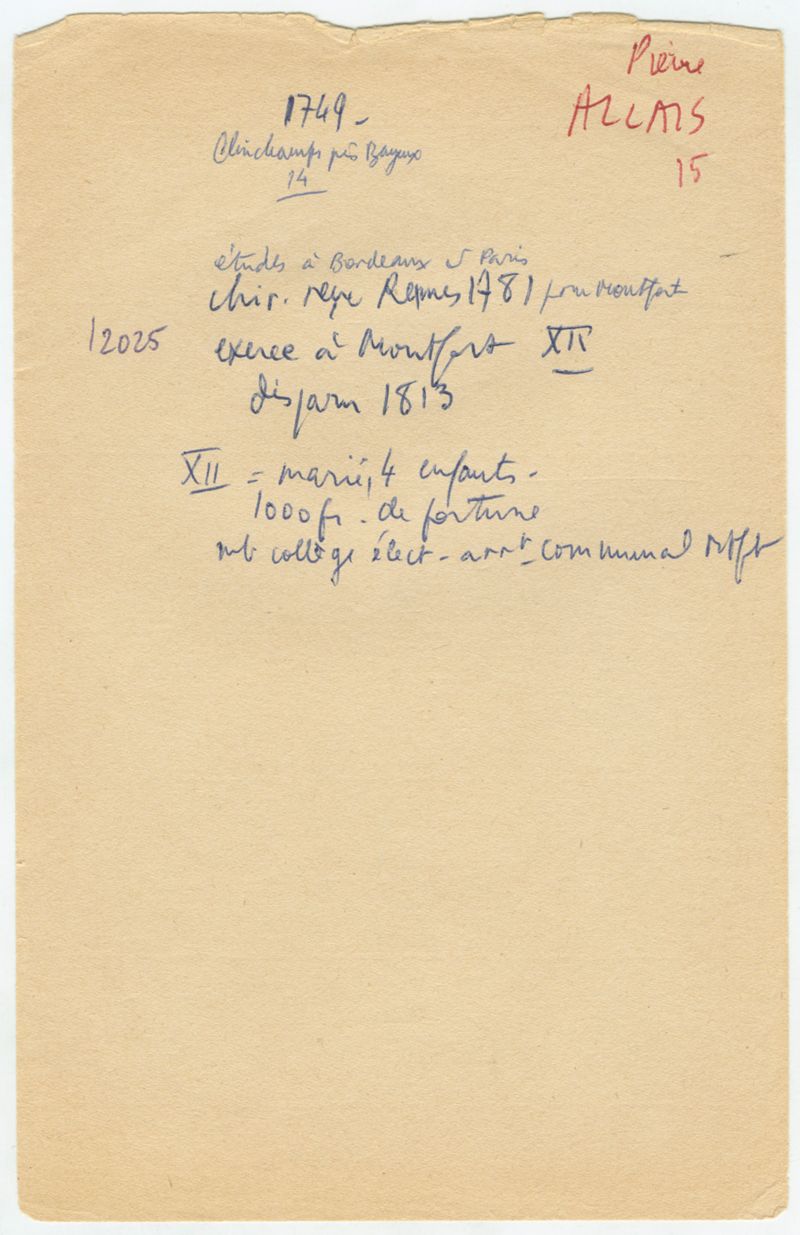 Pierre
ALLAIS
15
1749 -
Clinchamps près Bayeux
14
études à Bordeaux et Paris
chir. reçu Rennes 1781 pour Montfort
12025
exerce à Montfort XII
disparu 1813
XII = marié, 4 enfants -
1000 fr. de fortune
mb collège élect - arrt communal Mtft